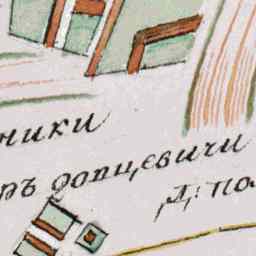 ники
ръ допцевичи
Д: по